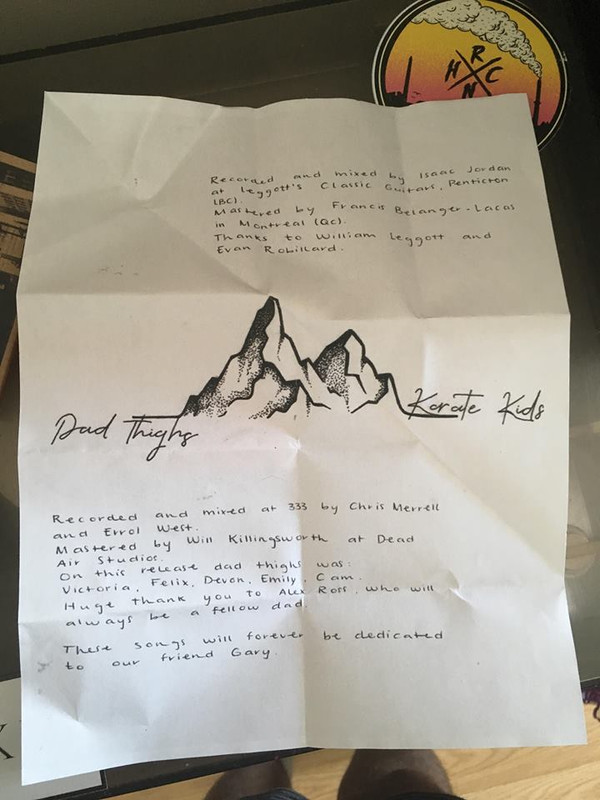 H R C N
Recorded and mixed by Isaac Jordan
at Leggott's Classic Guitars, Penticton
(BC).
Mastered by Francis Belanger-Lacas
in Montreal (Qc).
Thanks to William Leggott and
Evan Robillard.
Dad Thighs
Karate Kids
Recorded and mixed at 333 by Chris Merrell
and Errol West.
Mastered by Will Killingsworth at Dead
Air Studios.
On this release dad thighs was:
Victoria, Felix, Devon, Emily, Cam.
Huge thank you to Alex Ross, who will
always be a fellow dad.
These songs will forever be dedicated
to our friend Gary.